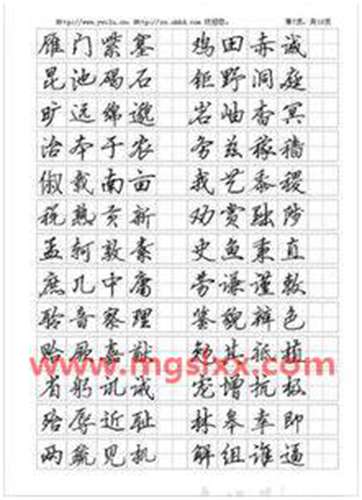 雁门紫塞 鸡田赤诚
昆池碣石 钜野洞庭
旷远绵邈 岩岫杳冥
治本于农 务兹稼穑
俶载南亩 我艺黍稷
税熟贡新 劝赏黜陟
孟轲敦素 史鱼秉直
庶几中庸 劳谦谨敕
聆音察理 鉴貌辨色
贻厥嘉猷 勉其祗植
www.mgslxx.com
省躬讥诫 宠增抗极
殆辱近耻 林皋幸即
两疏见机 解组谁逼